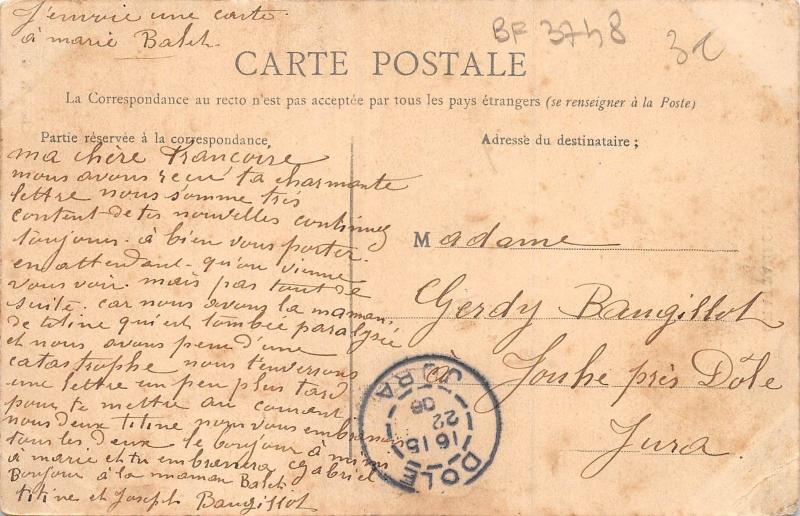 J'envoie une carte
à marie Balch.
BF 3748
CARTE POSTALE
La Correspondance au recto n'est pas acceptée par tous les pays étrangers (se renseigner à la Poste)
Partie réservée à la correspondance
Adresse du destinataire ;
ma chère Francoise
nous avons reçu ta charmante
lettre nous somme très
content de tes nouvelles continuez
toujours à bien vous porter.
en attendant qu'on vienne
vous voir. mais pas tout de
suite. car nous avons la maman
de titine qui est tombée paralysée
et nous avons peur d'une
catastrophe nous t'enverrons
une lettre un peu plus tard
pour te mettre au courant
nous deux titine nous vous embrassons
tous les deux le bonjour à mimi
à marie et tu embrassera Gabriel
Bonjour à la maman Balch
titine et Joseph Baugillot
Madame
Gerdy Baugillot
à Jouhe près Dôle
Jura.
DOLE
16 15
22
06
JURA